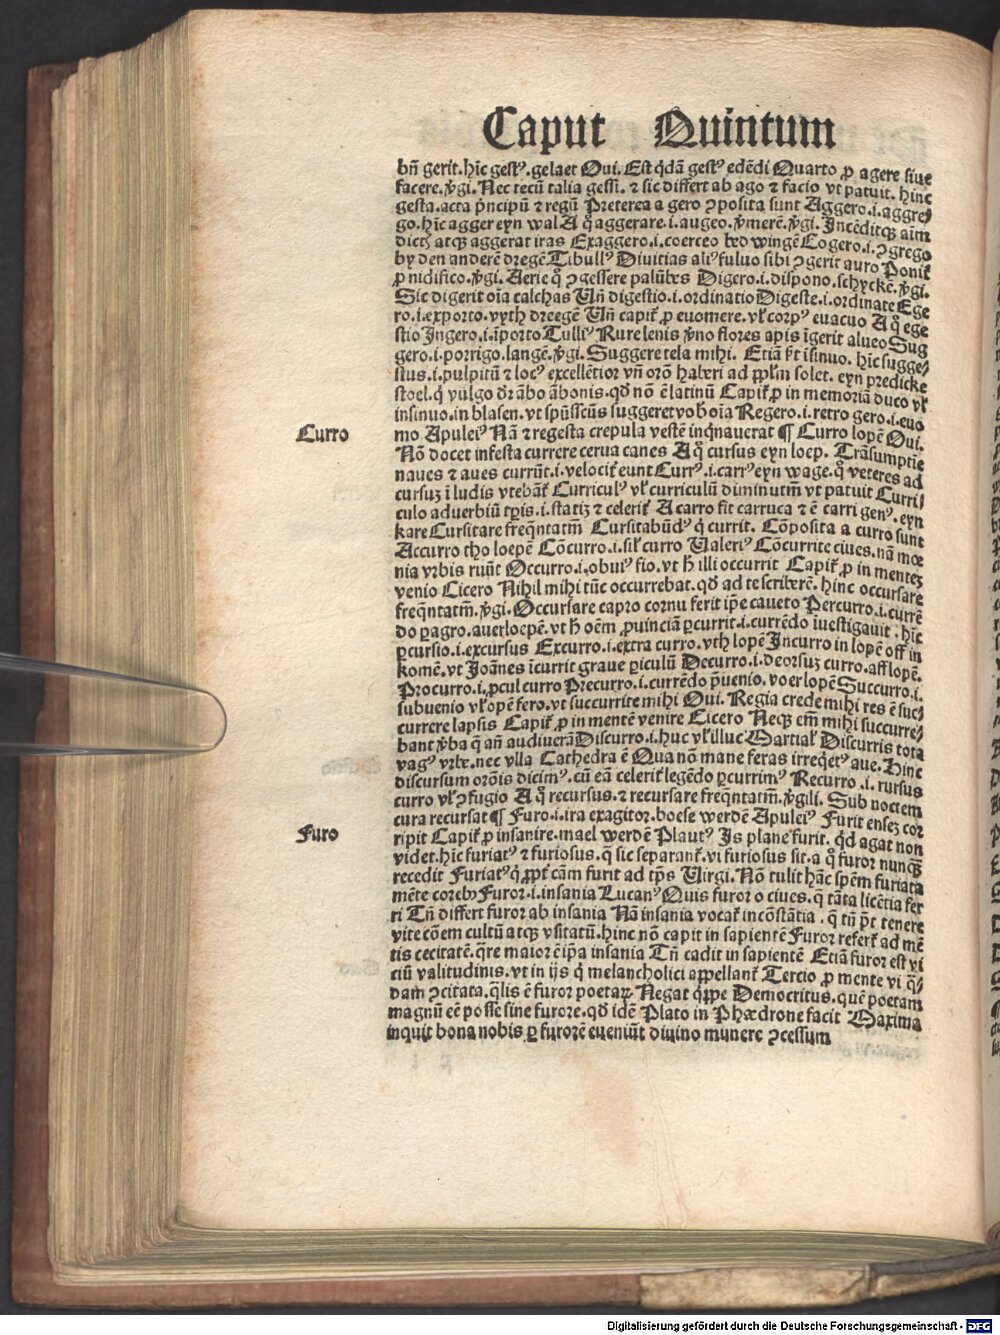 Caput Quintum
bñ gerit.hic̄ gestꝰ.gelaet Oui. Est q̇dā gestꝰ edēdi Quarto ꝓ agere siue
facere.ꝟgi. Nec tecū talia gessi. ⁊ sic differt ab ago ⁊ facio vt patuit. hinc
gesta.acta pͥncipū ⁊ regū Preterea a gero ꝯposita sunt Aggero.i.aggre/
go.hīc agger eyn wal A q̊ aggerare.i.augeo.ꝟmerē.ꝟgi. Incēditqꝫ aīm
dictꝭ atqꝫ aggerat iras Exaggero.i.coerceo bedwingē Cogero.i.ꝯgrego
by den anderē dregē Tibullꝰ Diuitias aliꝰ fuluo sibi ꝯgerit auro Ponit̃
ꝓ nidifico.ꝟgi. Aerie q̊ ꝯgessere palūbes Digero.i.dispono.schyckē.ꝟgi.
Sic digerit oīa calchas Uñ digestio.i.ordinatio Digeste.i.ordinate Ege
ro.i.exporto.vyth dreegē Uñ capit̃ ꝓ euomere.vl̃ corpꝰ euacuo A q̊ ege
stio Ingero.i.īporto Tulliꝰ Rure lenis ꝟno flores apis īgerit alueo Sug
gero.i.porrigo.langē.ꝟgi. Suggere tela mihi. Etiā ꝑt īsinuo. hīc sugge/
stus.i.pulpitū ⁊ locꝰ excellētior vñ orō haberi ad ppl̃m solet. eyn predicke
stoel.q̇ vulgo dr̄ ābo ābonis.qđ nō ē latinū Capit̃ ꝓ in memoriā duco vl̃
insinuo.in blasen.vt spūssctūs suggeret vob̃ oīa Regero.i.retro gero.i.euo
Curro
mo Apuleiꝰ Nā ⁊ regesta crepula vestē inq̇nauerat ¶ Curro lopē Oui.
Nō docet infesta currere cerua canes A q̊ cursus eyn loep. Trāsumptiē
naues ⁊ aues currūt.i.velocit̃ eunt Currꝰ.i.carrꝰ eyn wage.q̊ veteres ad
cursuꝫ ī ludis vtebāt̃ Curriculꝰ vl̃ curriculū diminutm̃ vt patuit Curri/
culo aduerbiū tꝑis.i.statiꝫ ⁊ celerit̃ A carro fit carruca ⁊ ē carri genꝰ.eyn
kare Cursitare freq̄ntatm̃ Cursitabūdꝰ q̇ currit. Cōposita a curro sunt
Accurro tho loepē Cōcurro.i.sil̃ curro Ualeriꝰ Cōcurrite ciues.nā moe
nia vrbis ruūt Occurro.i.obuiꝰ fio.vt h̃ illi occurrit Capit̃ ꝓ in menteꝫ
venio Cicero Nihil mihi tūc occurrebat.qđ ad te scriberē. hinc occursare
freq̄ntatm̃.ꝟgi. Occursare capro cornu ferit ip̄e caueto Percurro.i.currē
do ꝑagro.auerloepē.vt h̃ oēm ꝓuinciā ꝑcurrit.i.currēdo īuestigauit. hīc
ꝑcursio.i.excursus Excurro.i.extra curro.vth lopē Incurro in lopē off in
komē.vt Joānes īcurrit graue ꝑiculū Decurro.i.deorsuꝫ curro.aff lopē.
Procurro.i.ꝓcul curro Precurro.i.currēdo p̄uenio.voer lopē Succurro.i.
subuenio vl̃ opē fero.vt succurrite mihi Oui. Regia crede mihi res ē suc/
currere lapsis Capit̃ ꝓ in mentē venire Cicero Neqꝫ em̄ mihi succurre/
bant ꝟba q̄ añ audiuerā Discurro.i.huc vl̃ illuc Martial̃ Discurris tota
vagꝰ vrbe.nec vlla Cathedra ē Qua nō mane feras irreq̇etꝰ aue. Hinc
discursum orōis dicimꝰ.cū eā celerit̃ legēdo ꝑcurrimꝰ Recurro .i. rursus
curro vl̃ ꝯfugio A q̊ recursus.⁊ recursare freq̄ntatm̃.ꝟgili. Sub noctem
Furo
cura recursat ¶ Furo.i.ira exagitor.boese werdē Apuleiꝰ Furit enseꝫ cor
ripit Capit̃ ꝓ insanire.mael werdē Plautꝰ Is plane furit. q̇d agat non
videt.hīc furiatꝰ ⁊ furiosus.q̄ sic separant̃.vt furiosus sit.a q̊ furor nunqꝫ
recedit Furiatꝰ q̇ ꝓpt̃ cām furit ad tꝑs Uirgi. Nō tulit hāc spēm furiata
mēte coreb Furor.i.insania Lucanꝰ Quis furor o ciues.q̄ tāta licētia fer
ri Tñ differt furor ab insania Nā insania vocat̃ incōstātia .q̄ tñ pōt tenere
vite cōem cultū atqꝫ vsitatū.hinc nō capit in sapientē Furor refert̃ ad mē
tis cecitatē.q̄re maior ē ip̄a insania Tñ cadit in sapientē Etiā furor est vi
ciū valitudinis.vt in ijs q̇ melancholici appellant̃ Tercio ꝓ mente vi q̄/
dam ꝯcitata.q̄lis ē furor poetaꝝ. Negat q̇ppe Democritus.quē poetam
magnū eē posse sine furore.qđ idē Plato in Phædrone facit Maxima
inquit bona nobis ꝑ furorē eueniūt diuino munere ꝯcessum
Digitalisierung gefördert durch die Deutsche Forschungsgemeinschaft - DFG